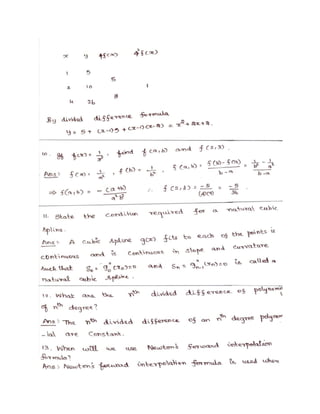 x y ⍋f(x) ⍋²f(x)
1 5
5
2 10 1
8
4 26
By divided difference formula
y = 5 + (x-1)5 + (x-1)(x-2) = x²+2x+2.
10. If f(x) = 1/x², find f(a,b) and f(2,3).
Ans: f(a) = 1/a², f(b) = 1/b², f(a,b) = f(b)-f(a)/b-a = 1/b² - 1/a²/b-a
⇒ f(a,b) = -(a+b)/a²b² ∴ f(2,3) = -5/(4)(9) = -5/36
11. State the condition required for a natural cubic
spline.
Ans: A cubic spline g(x) fits to each of the points is
continuous and is continuous in slope and curvature
such that S₀ = g₀''(x₀)=0 and Sₙ = g''ₙ₋₁(xₙ)=0 is called a
natural cubic spline.
12. What are the nth divided difference of polynomial
of nth degree?
Ans: The nth divided difference of an nth degree polynom
-ial are constant.
13. When will we use Newton's forward interpolation
formula?
Ans: Newton's forward interpolation formula is used when